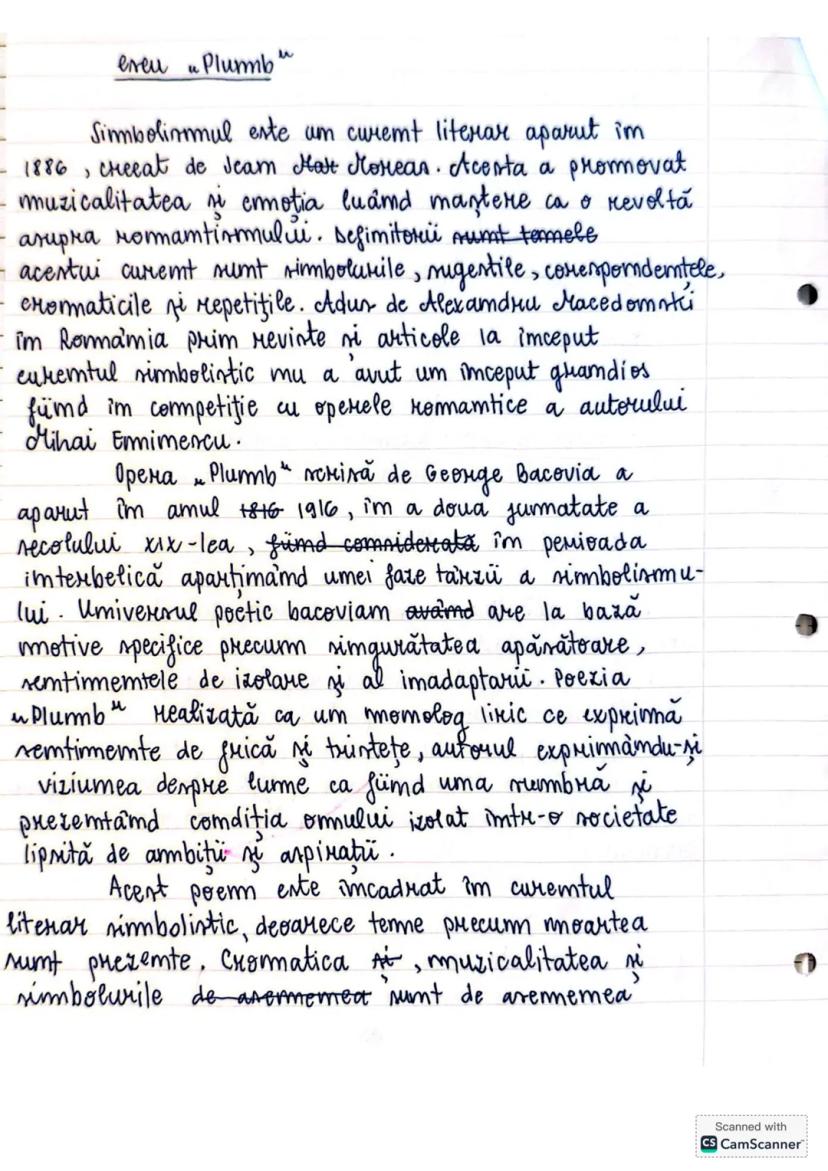 eseu „Plumb"
Simbolismul este un curent literar aparut în
1886, creeat de Jean Mor Moreas. Acesta a promovat
muzicalitatea și emoția luând naștere ca o revoltă
asupra romantismului. Definitorii sunt temele
acestui curent sunt simbolurile, sugestiile, corespondențele,
cromaticile și repetițile. Adus de Alexandru Macedonski
în România prin reviste si articole la început
curentul simbolistic nu a avut un început grandios
fiind în competiție cu operele romantice a autorului
Mihai Eminescu.
Opera „Plumb" scrisă de George Bacovia a
aparut în anul 1816 1916, în a doua jumatate a
secolului XIX-lea, fiind considerată în perioada
interbelică aparținând unei faze târzii a simbolismu-
lui. Universul poetic bacovian având are la bază
motive specifice precum singurătatea apăsătoare,
sentimentele de izolare și al inadaptarii. Poezia
„Plumb" realizată ca un monolog liric ce exprimă
sentimente de frică și tristețe, autorul exprimându-și
viziunea despre lume ca fiind una sumbră și
prezentând condiția omului izolat într-o societate
lipsită de ambiții și aspirații.
Acest poem este încadrat în curentul
literar simbolistic, deoarece teme precum moartea
sunt prezente. Cromatica și, muzicalitatea și
simbolurile de asemenea sunt de asemenea
Scanned with
CS CamScanner